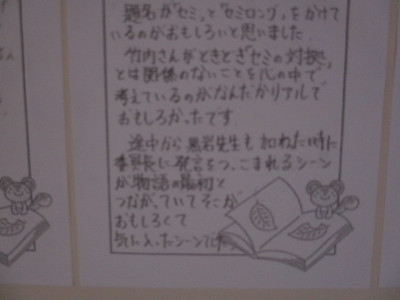 題名が「セミ」と「セミロング」をかけて
いるのがおもしろいと思いました。
竹内さんがときどき「セミの対拠」
とは関係のないことを心の中で
考えているのがなんだかリアルで
おもしろかったです。
途中から黒岩先生も加わった時に
委員長に発言をつっこまれるシーン
が物語の最初と
つながっていてそこが
おもしろくて
気に入ったシーンです。